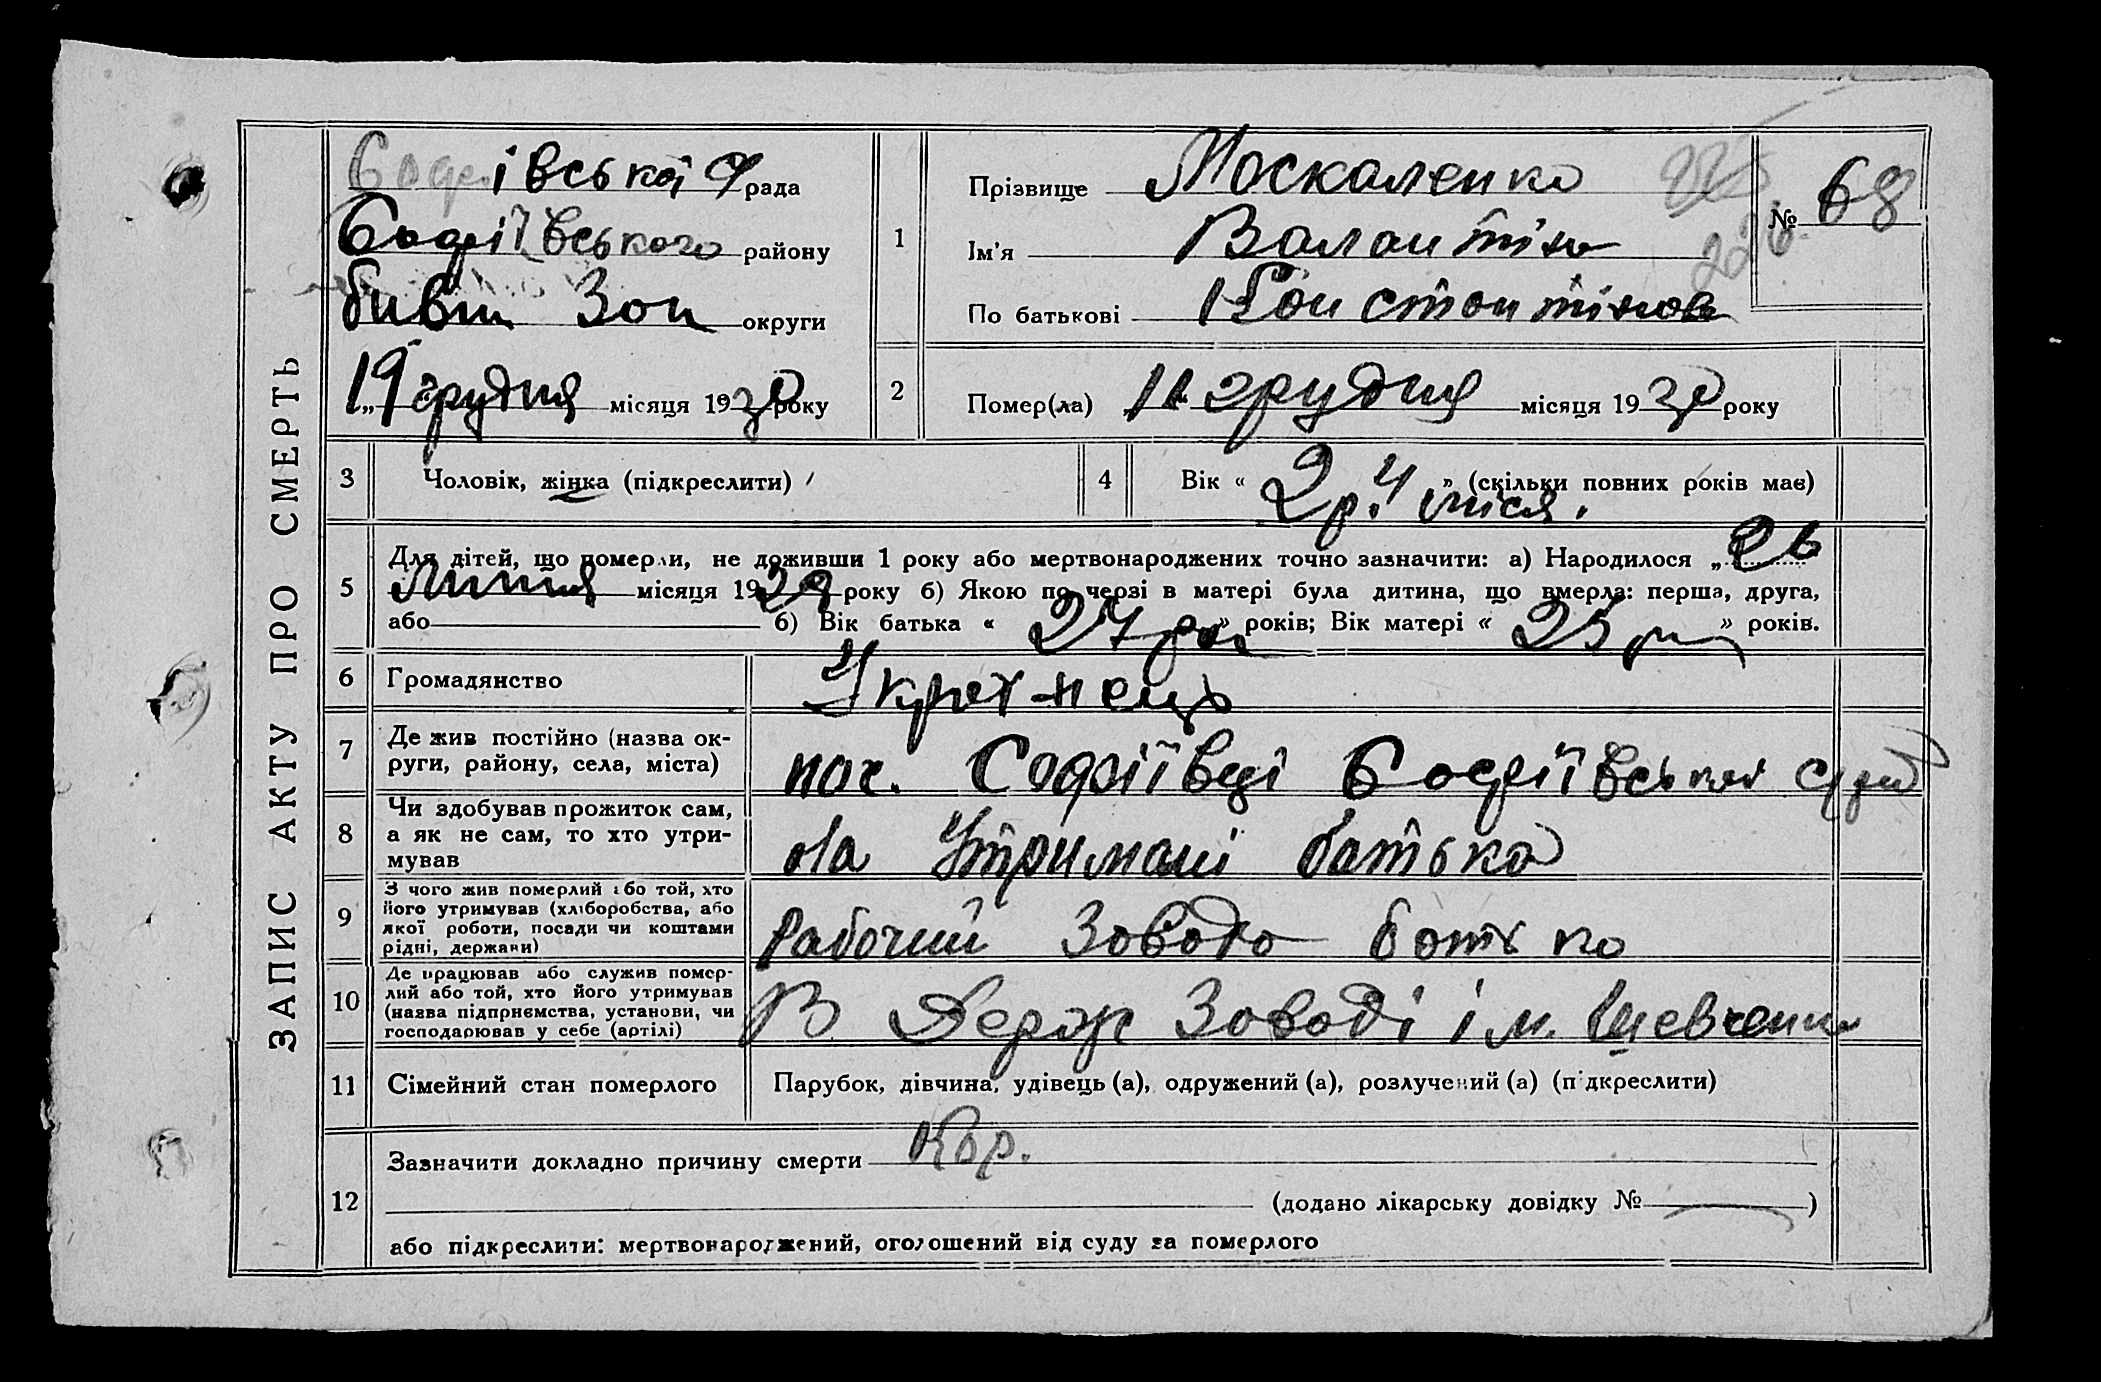 ЗАПИС АКТУ ПРО СМЕРТЬ
Софіївської рада
Софіївського району
бивш Зап округи
„19 грудня місяця 1930 року
1
Прізвище Москаленко
Ім'я Валантіна
По батькові Констонтінов
№ 68
2
Помер(ла) 11 грудня місяця 1930 року
3 Чоловік, жінка (підкреслити)
4 Вік « 2 р. 4 міся. » (скільки повних років має)
5
Для дітей, що померли, не доживши 1 року або мертвонароджених точно зазначити: а) Народилося „26
липня місяця 1928 року б) Якою по черзі в матері була дитина, що вмерла: перша, друга,
або б) Вік батька « 27 рок » років; Вік матері « 25 р » років.
6 Громадянство Українець
7 Де жив постійно (назва ок-
руги, району, села, міста)
пос. Софіївці Софіївської с/рад
8 Чи здобував прожиток сам,
а як не сам, то хто утри-
мував
На Утримані батька
9 З чого жив померлий або той, хто
його утримував (хліборобства, або
якої роботи, посади чи коштами
рідні, держави)
Рабочий Завода батько
10 Де працював або служив помер-
лий або той, хто його утримував
(назва підприємства, установи, чи
господарював у себе (артілі)
В Держ Заводі ім. Шевченка
11 Сімейний стан померлого Парубок, дівчина, удівець (а), одружений (а), розлучений (а) (підкреслити)
12
Зазначити докладно причину смерти Кор.
(додано лікарську довідку № )
або підкреслити: мертвонароджений, оголошений від суду за померлого